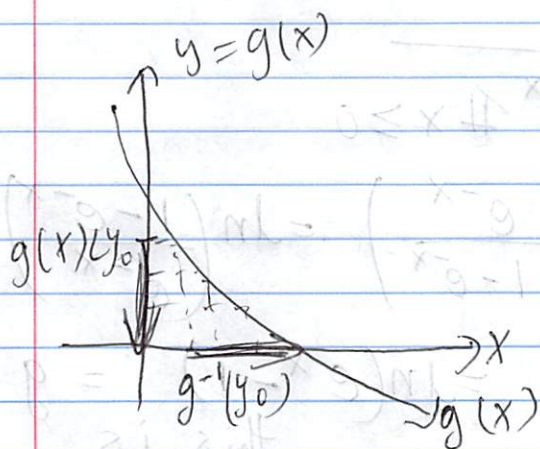 y = g(x)
g(x)<y₀
x
g⁻¹(y₀)
g(x)